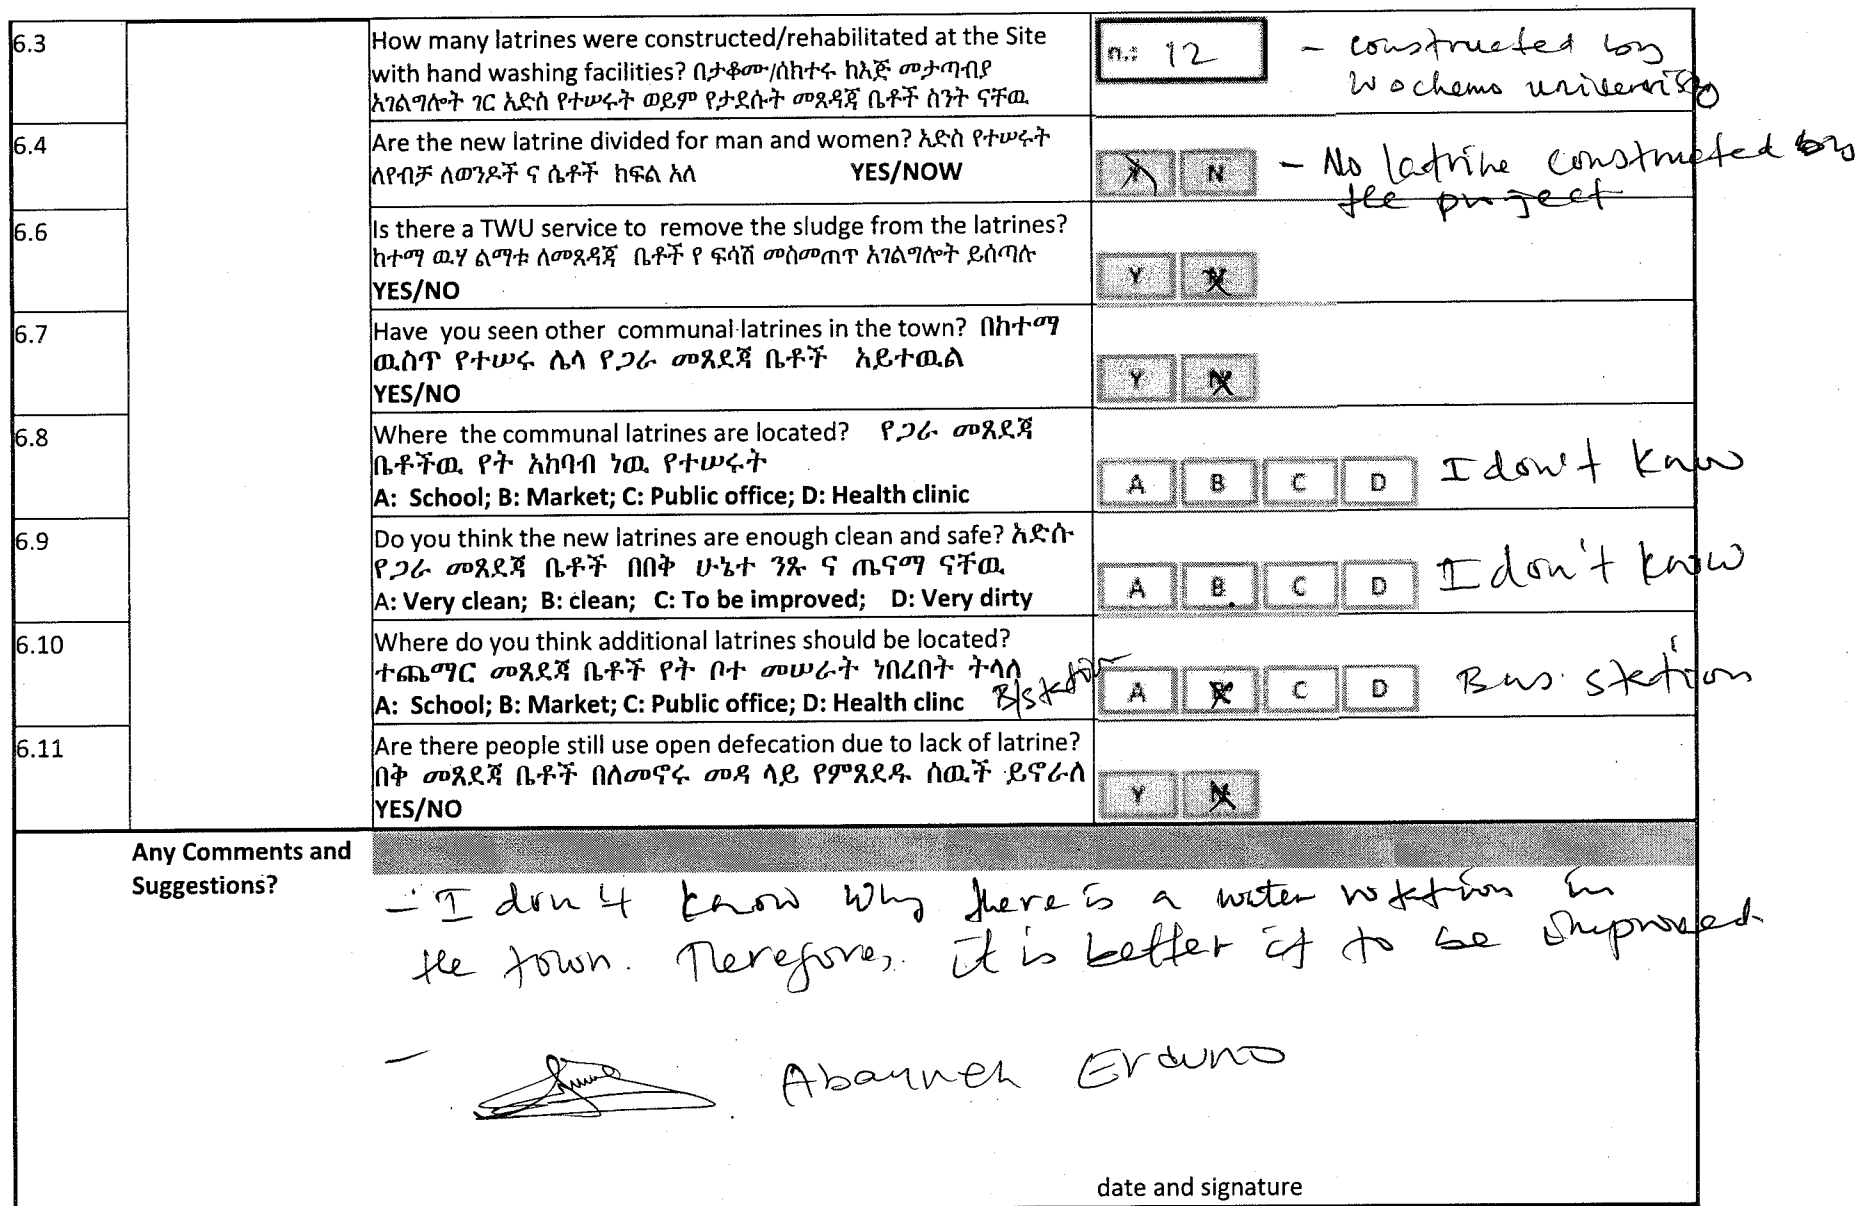 6.3
How many latrines were constructed/rehabilitated at the Site
with hand washing facilities? በታቆሙ/ሰከተሩ ከእጅ መታጣብያ
አገልግሎት ገር አድስ የተሠሩት ወይም የታደሱት መጸዳጃ ቤቶች ስንት ናቸዉ
n.: 12
- constructed by
Wochemo university
6.4
Are the new latrine divided for man and women? አድስ የተሠሩት
ለየብቻ ለወንዶች ና ሴቶች ክፍል አለ YES/NOW
Y N
- No latrine constructed by
the project
6.6
Is there a TWU service to remove the sludge from the latrines?
ከተማ ዉሃ ልማቱ ለመጸዳጃ ቤቶች የ ፍሳሽ መስመጠጥ አገልግሎት ይሰጣሉ
YES/NO
Y N
6.7
Have you seen other communal latrines in the town? በከተማ
ዉስጥ የተሠሩ ሌላ የጋራ መጸደጃ ቤቶች አይተዉል
YES/NO
Y N
6.8
Where the communal latrines are located? የጋራ መጸደጃ
ቤቶችዉ የት አከባብ ነዉ የተሠሩት
A: School; B: Market; C: Public office; D: Health clinic
A B C D I don't know
6.9
Do you think the new latrines are enough clean and safe? አድሱ
የጋራ መጸደጃ ቤቶች በበቅ ሁኔተ ንጹ ና ጤናማ ናቸዉ
A: Very clean; B: clean; C: To be improved; D: Very dirty
A B C D I don't know
6.10
Where do you think additional latrines should be located?
ተጨማር መጸደጃ ቤቶች የት ቦተ መሠራት ነበረበት ትላለ
A: School; B: Market; C: Public office; D: Health clinc B/station
A B C D Bus station
6.11
Are there people still use open defecation due to lack of latrine?
በቅ መጸደጃ ቤቶች በለመኖሩ መዳ ላይ የምጸደዱ ሰዉች ይኖራለ
YES/NO
Y N
Any Comments and
Suggestions?
- I don't know why there is a water rotation in
the town. Therefore, it is better if to be improved
- Abayneh Erduno
date and signature